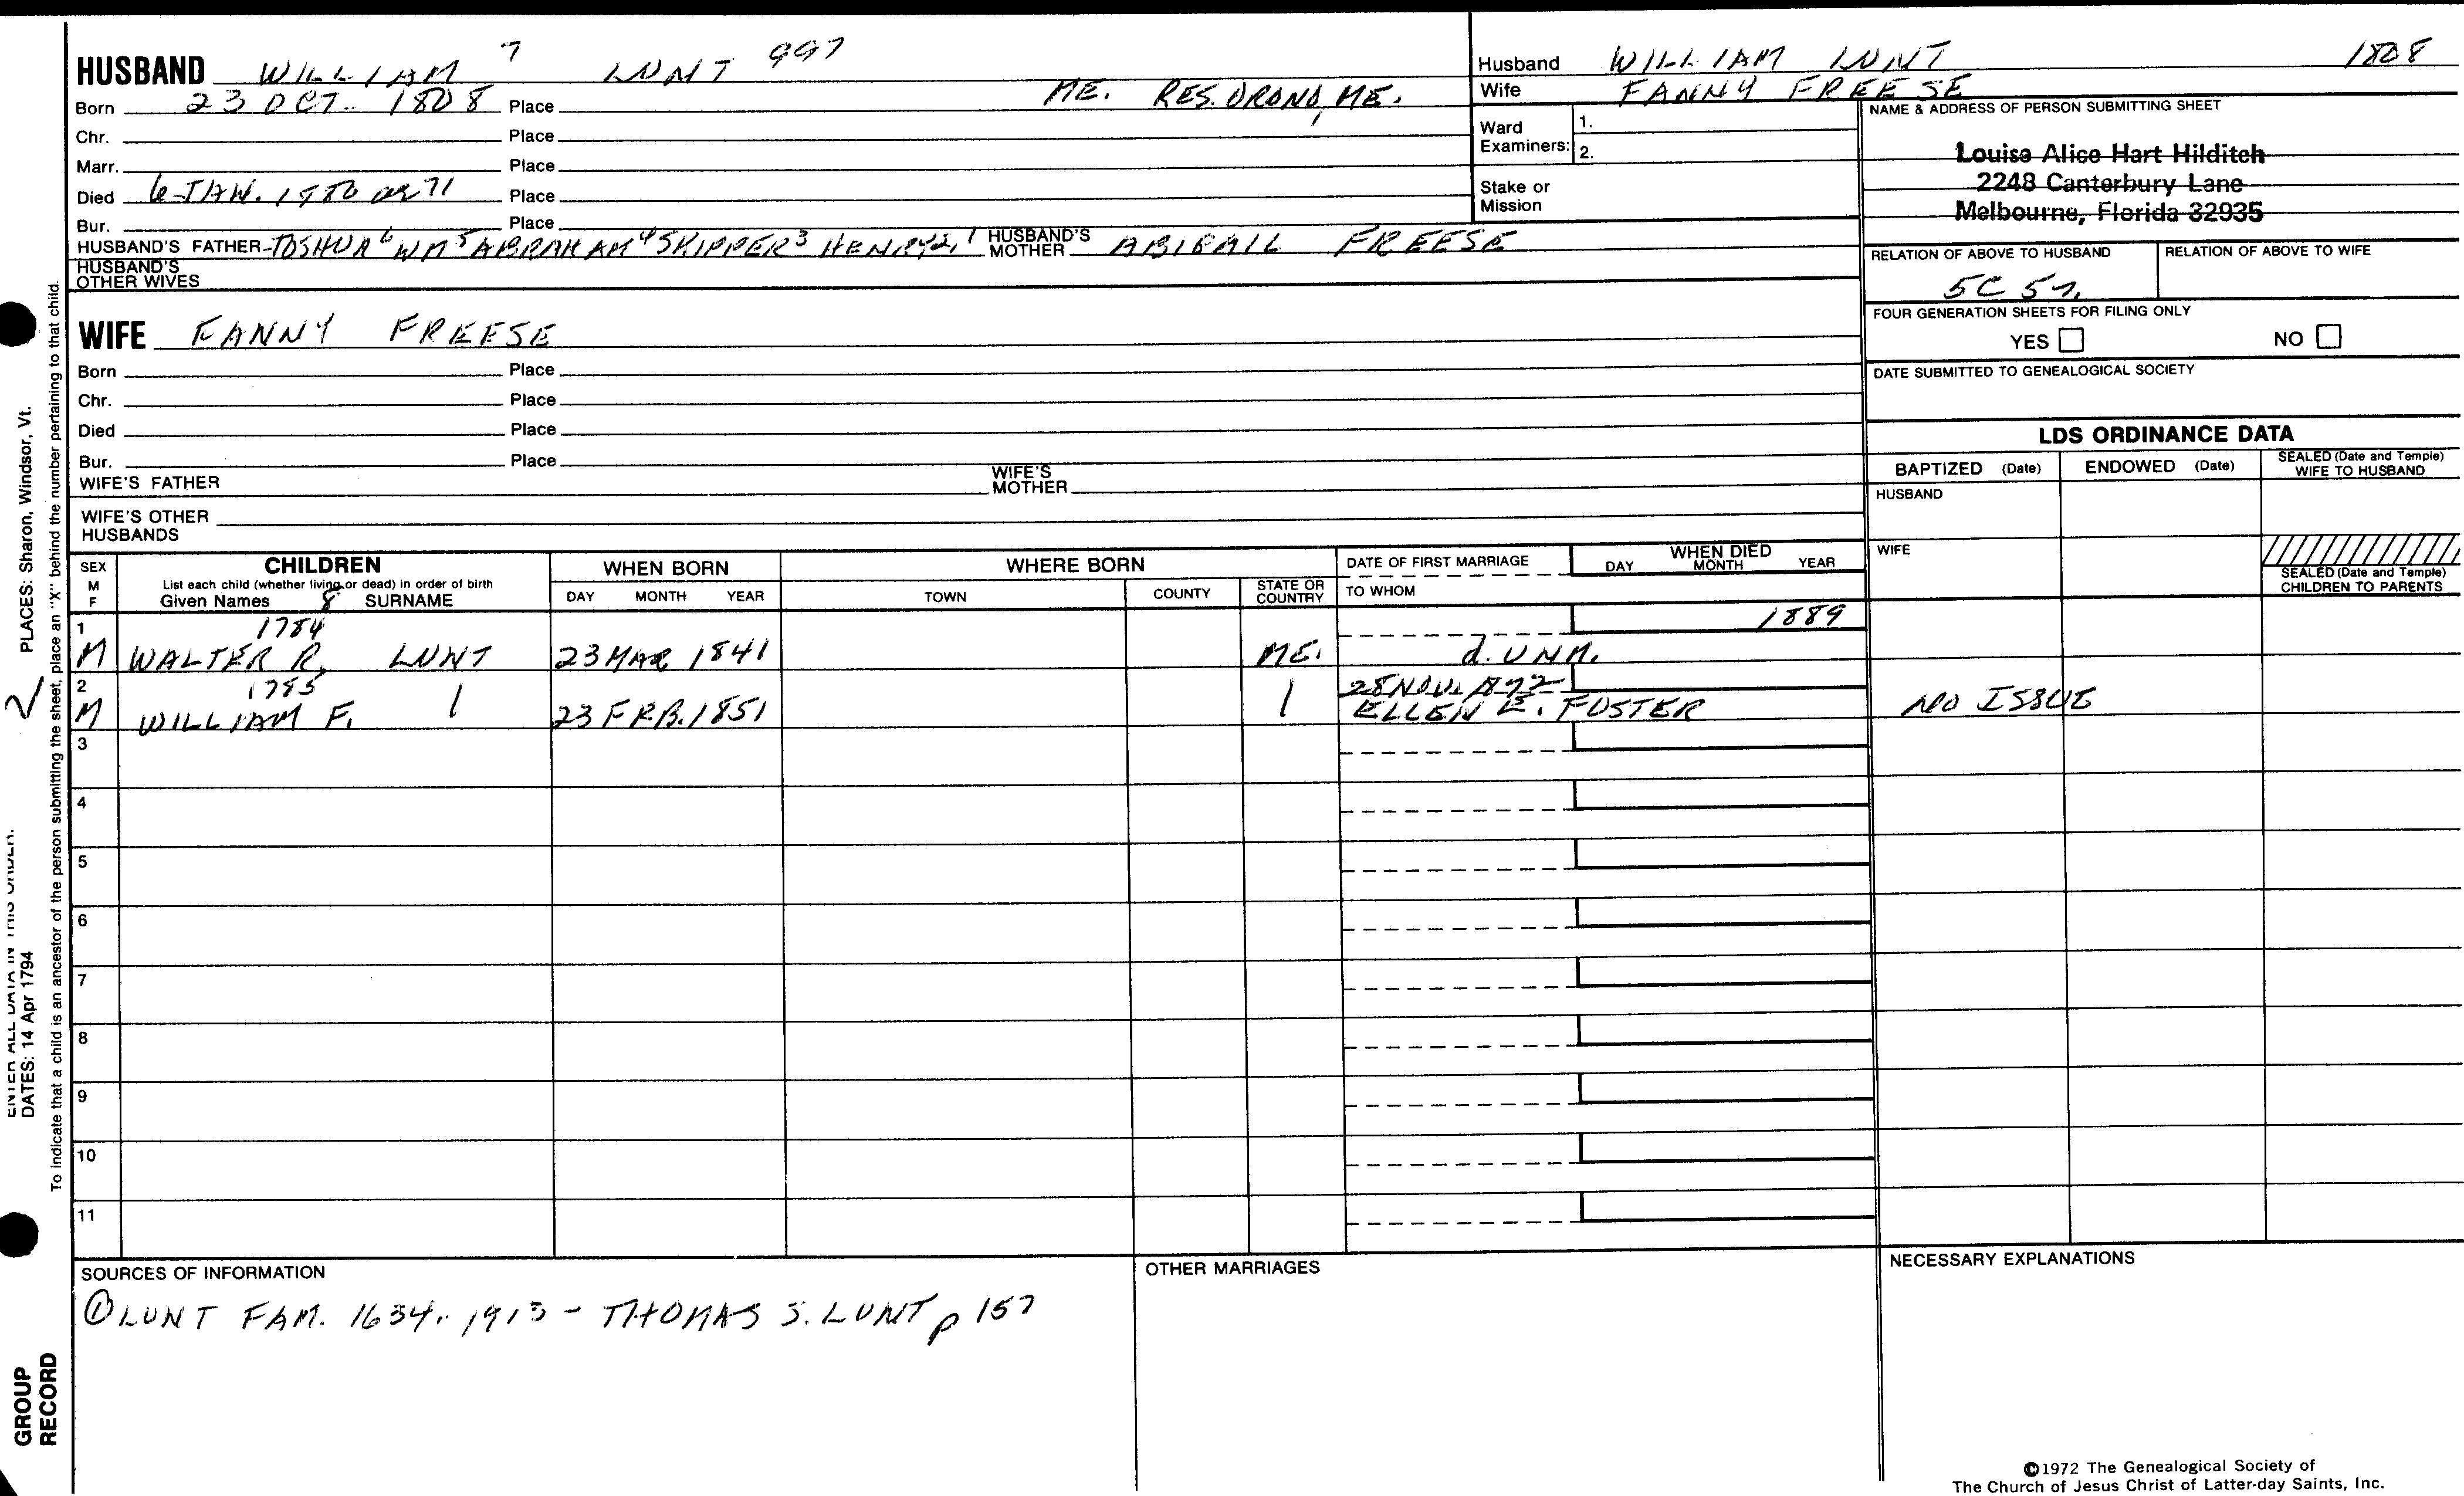 HUSBAND WILLIAM 7 LUNT 997
Born 23 OCT. 1808 Place ME. RES. ORONO, ME.
Chr. Place
Marr. Place
Died 6 JAN. 1880 or 71 Place
Bur. Place
HUSBAND'S FATHER JOSHUA 6 WM 5 ABRAHAM 4 SKIPPER 3 HENRY 2, 1 HUSBAND'S MOTHER ABIGAIL FREESE
HUSBAND'S OTHER WIVES
WIFE FANNY FREESE
Born Place
Chr. Place
Died Place
Bur. Place
WIFE'S FATHER WIFE'S MOTHER
WIFE'S OTHER HUSBANDS
Husband WILLIAM LUNT 1808
Wife FANNY FREESE
Ward Examiners: 1.
2.
Stake or Mission
NAME & ADDRESS OF PERSON SUBMITTING SHEET
Louise Alice Hart Hilditch
2248 Canterbury Lane
Melbourne, Florida 32935
RELATION OF ABOVE TO HUSBAND RELATION OF ABOVE TO WIFE
5C 5
FOUR GENERATION SHEETS FOR FILING ONLY
YES NO
DATE SUBMITTED TO GENEALOGICAL SOCIETY
LDS ORDINANCE DATA
BAPTIZED (Date) ENDOWED (Date) SEALED (Date and Temple) WIFE TO HUSBAND
HUSBAND
WIFE
SEALED (Date and Temple) CHILDREN TO PARENTS
SEX M F
CHILDREN
List each child (whether living or dead) in order of birth
Given Names 8 SURNAME
WHEN BORN
DAY MONTH YEAR
WHERE BORN
TOWN COUNTY STATE OR COUNTRY
DATE OF FIRST MARRIAGE
TO WHOM
WHEN DIED
DAY MONTH YEAR
1 1784 1889
M WALTER R. LUNT 23 MAR 1841 ME. d. UNM.
2 1785 28 NOV. 1872
M WILLIAM F. 23 FEB. 1851 ELLEN E. FOSTER NO ISSUE
3
4
5
6
7
8
9
10
11
SOURCES OF INFORMATION
① LUNT FAM. 1634-1913 - THOMAS S. LUNT p 157
OTHER MARRIAGES
NECESSARY EXPLANATIONS
©1972 The Genealogical Society of
The Church of Jesus Christ of Latter-day Saints, Inc.
PLACES: Sharon, Windsor, Vt.
2
ENTER ALL DATA IN THIS ORDER:
DATES: 14 Apr 1794
To indicate that a child is an ancestor of the person submitting the sheet, place an "X" behind the number pertaining to that child.
GROUP
RECORD